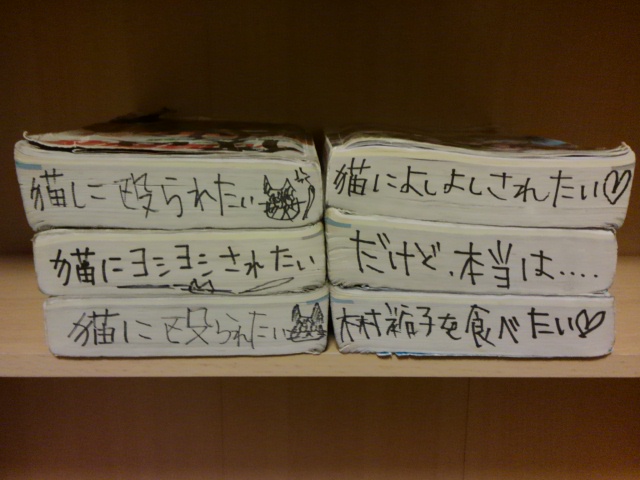 猫に殴られたい
猫にヨシヨシされたい
猫に殴られたい
猫によしよしされたい♡
だけど、本当は....
木村裕子を食べたい♡